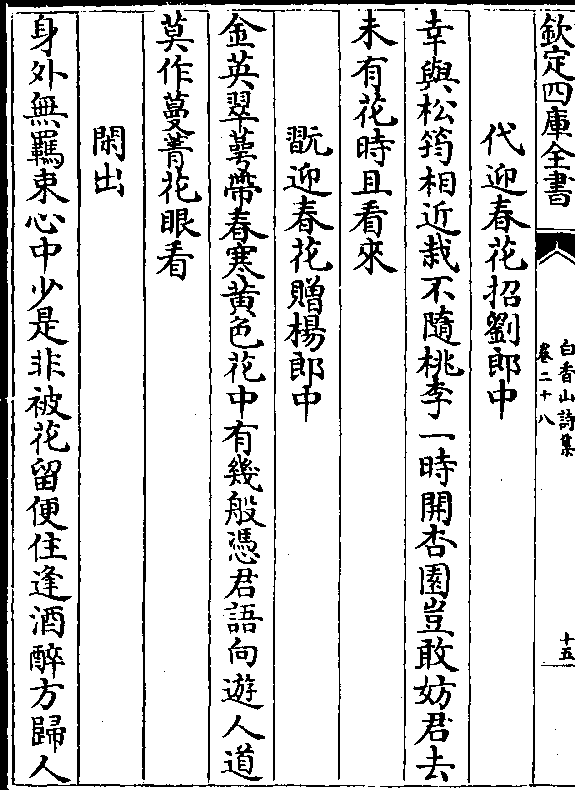 欽定四庫全書
白香山詩集
卷二十八
十五
代迎春花招劉郎中
幸與松筠相近栽不隨桃李一時開杏園豈敢妨君去
未有花時且看來
翫迎春花贈楊郎中
金英翠萼帶春寒黃色花中有幾般憑君語向遊人道
莫作蔓菁花眼看
閑出
身外無羈束心中少是非被花留便住逢酒醉方歸人